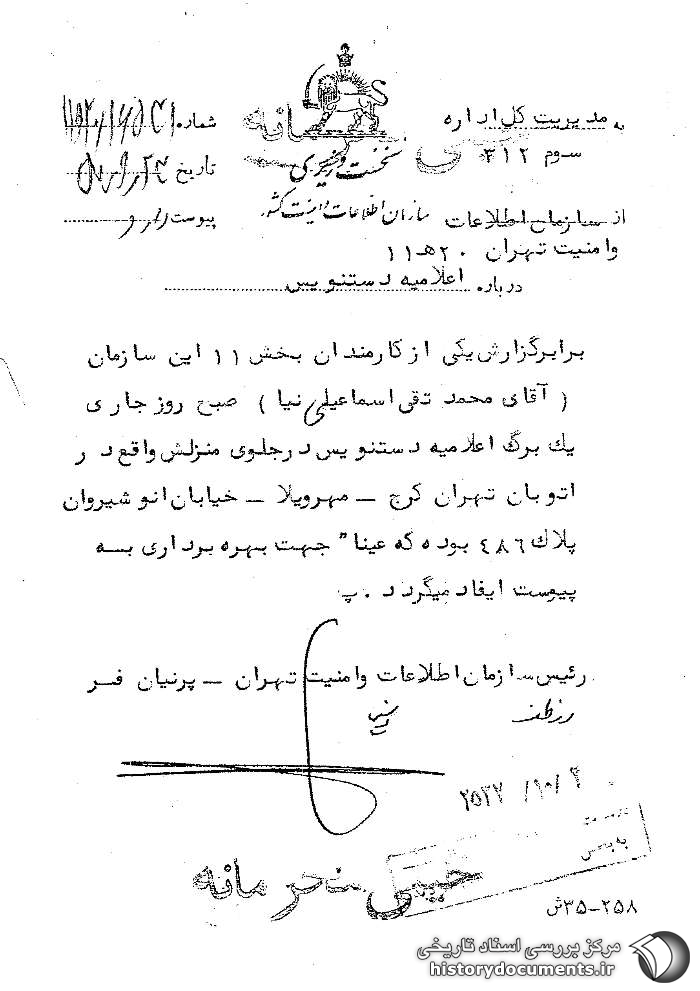 به مدیریت کل اداره
سوم ۳۱۲
نخست وزیری
سازمان اطلاعات و امنیت کشور
شماره
تاریخ
پیوست دارد
از سازمان اطلاعات
وامنیت تهران ۲۰هـ۱۱
درباره اعلامیه دستنویس
برابرگزارش یکی ازکارمندان بخش ۱۱ این سازمان
( آقای محمد تقی اسماعیلی نیا ) صبح روز جاری
یك برگ اعلامیه دستنویس درجلوی منزلش واقع در
اتوبان تهران کرج ــ مهرویلا ــ خیابان انوشیروان
پلاك ٤٨٦ بوده که عینا" جهت بهره برداری بسه
پیوست ایفاد میگردد .پ
رئیس سازمان اطلاعات وامنیت تهران ــ پرنیان فر
۲۵۳۷/۱۰/۴
به بخش
خیلی محرمانه
۲۵۸-۳۵ش
مرکز بررسی اسناد تاریخی
historydocuments.ir